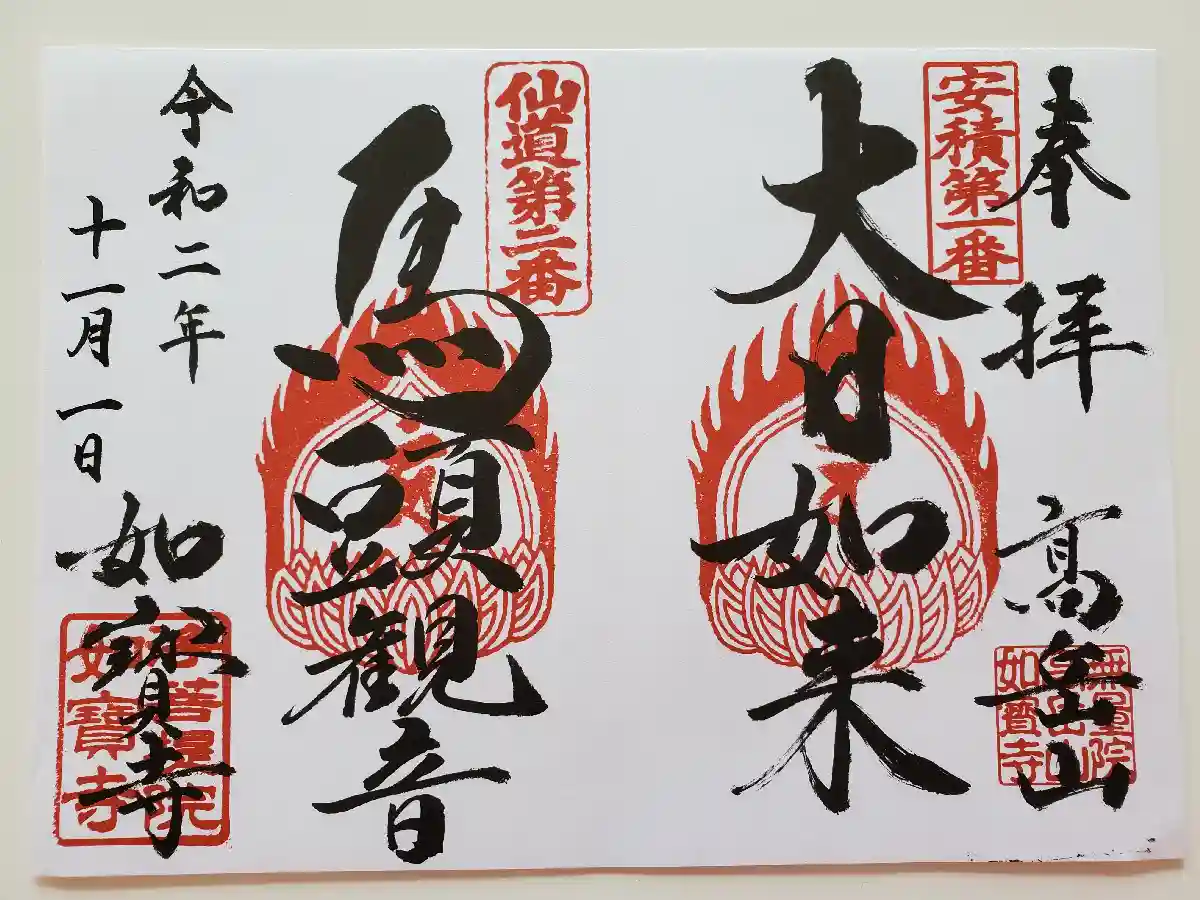 奉拝 高岳山
安積第一番
大日如来
仙道第二番
馬頭観音
令和二年
十一月一日
如寳寺
無量院
如寶寺
菩提院
如寶寺